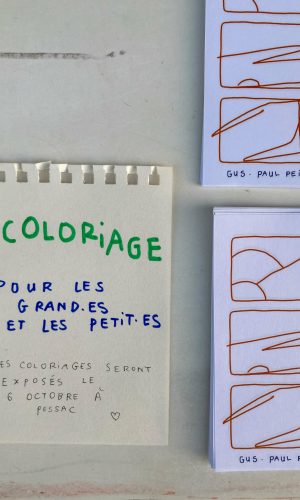 COLORIAGE
POUR LES
GRAND·ES
ET LES PETIT·ES
ES COLORIAGES SERONT
EXPOSÉS LE
6 OCTOBRE À
PESSAC
GUS · PAUL PEI
GUS · PAUL P